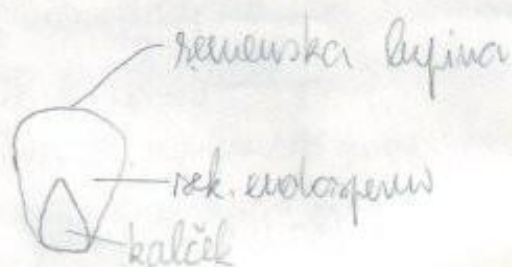 semenska lupina
sek. endosperm
kalček